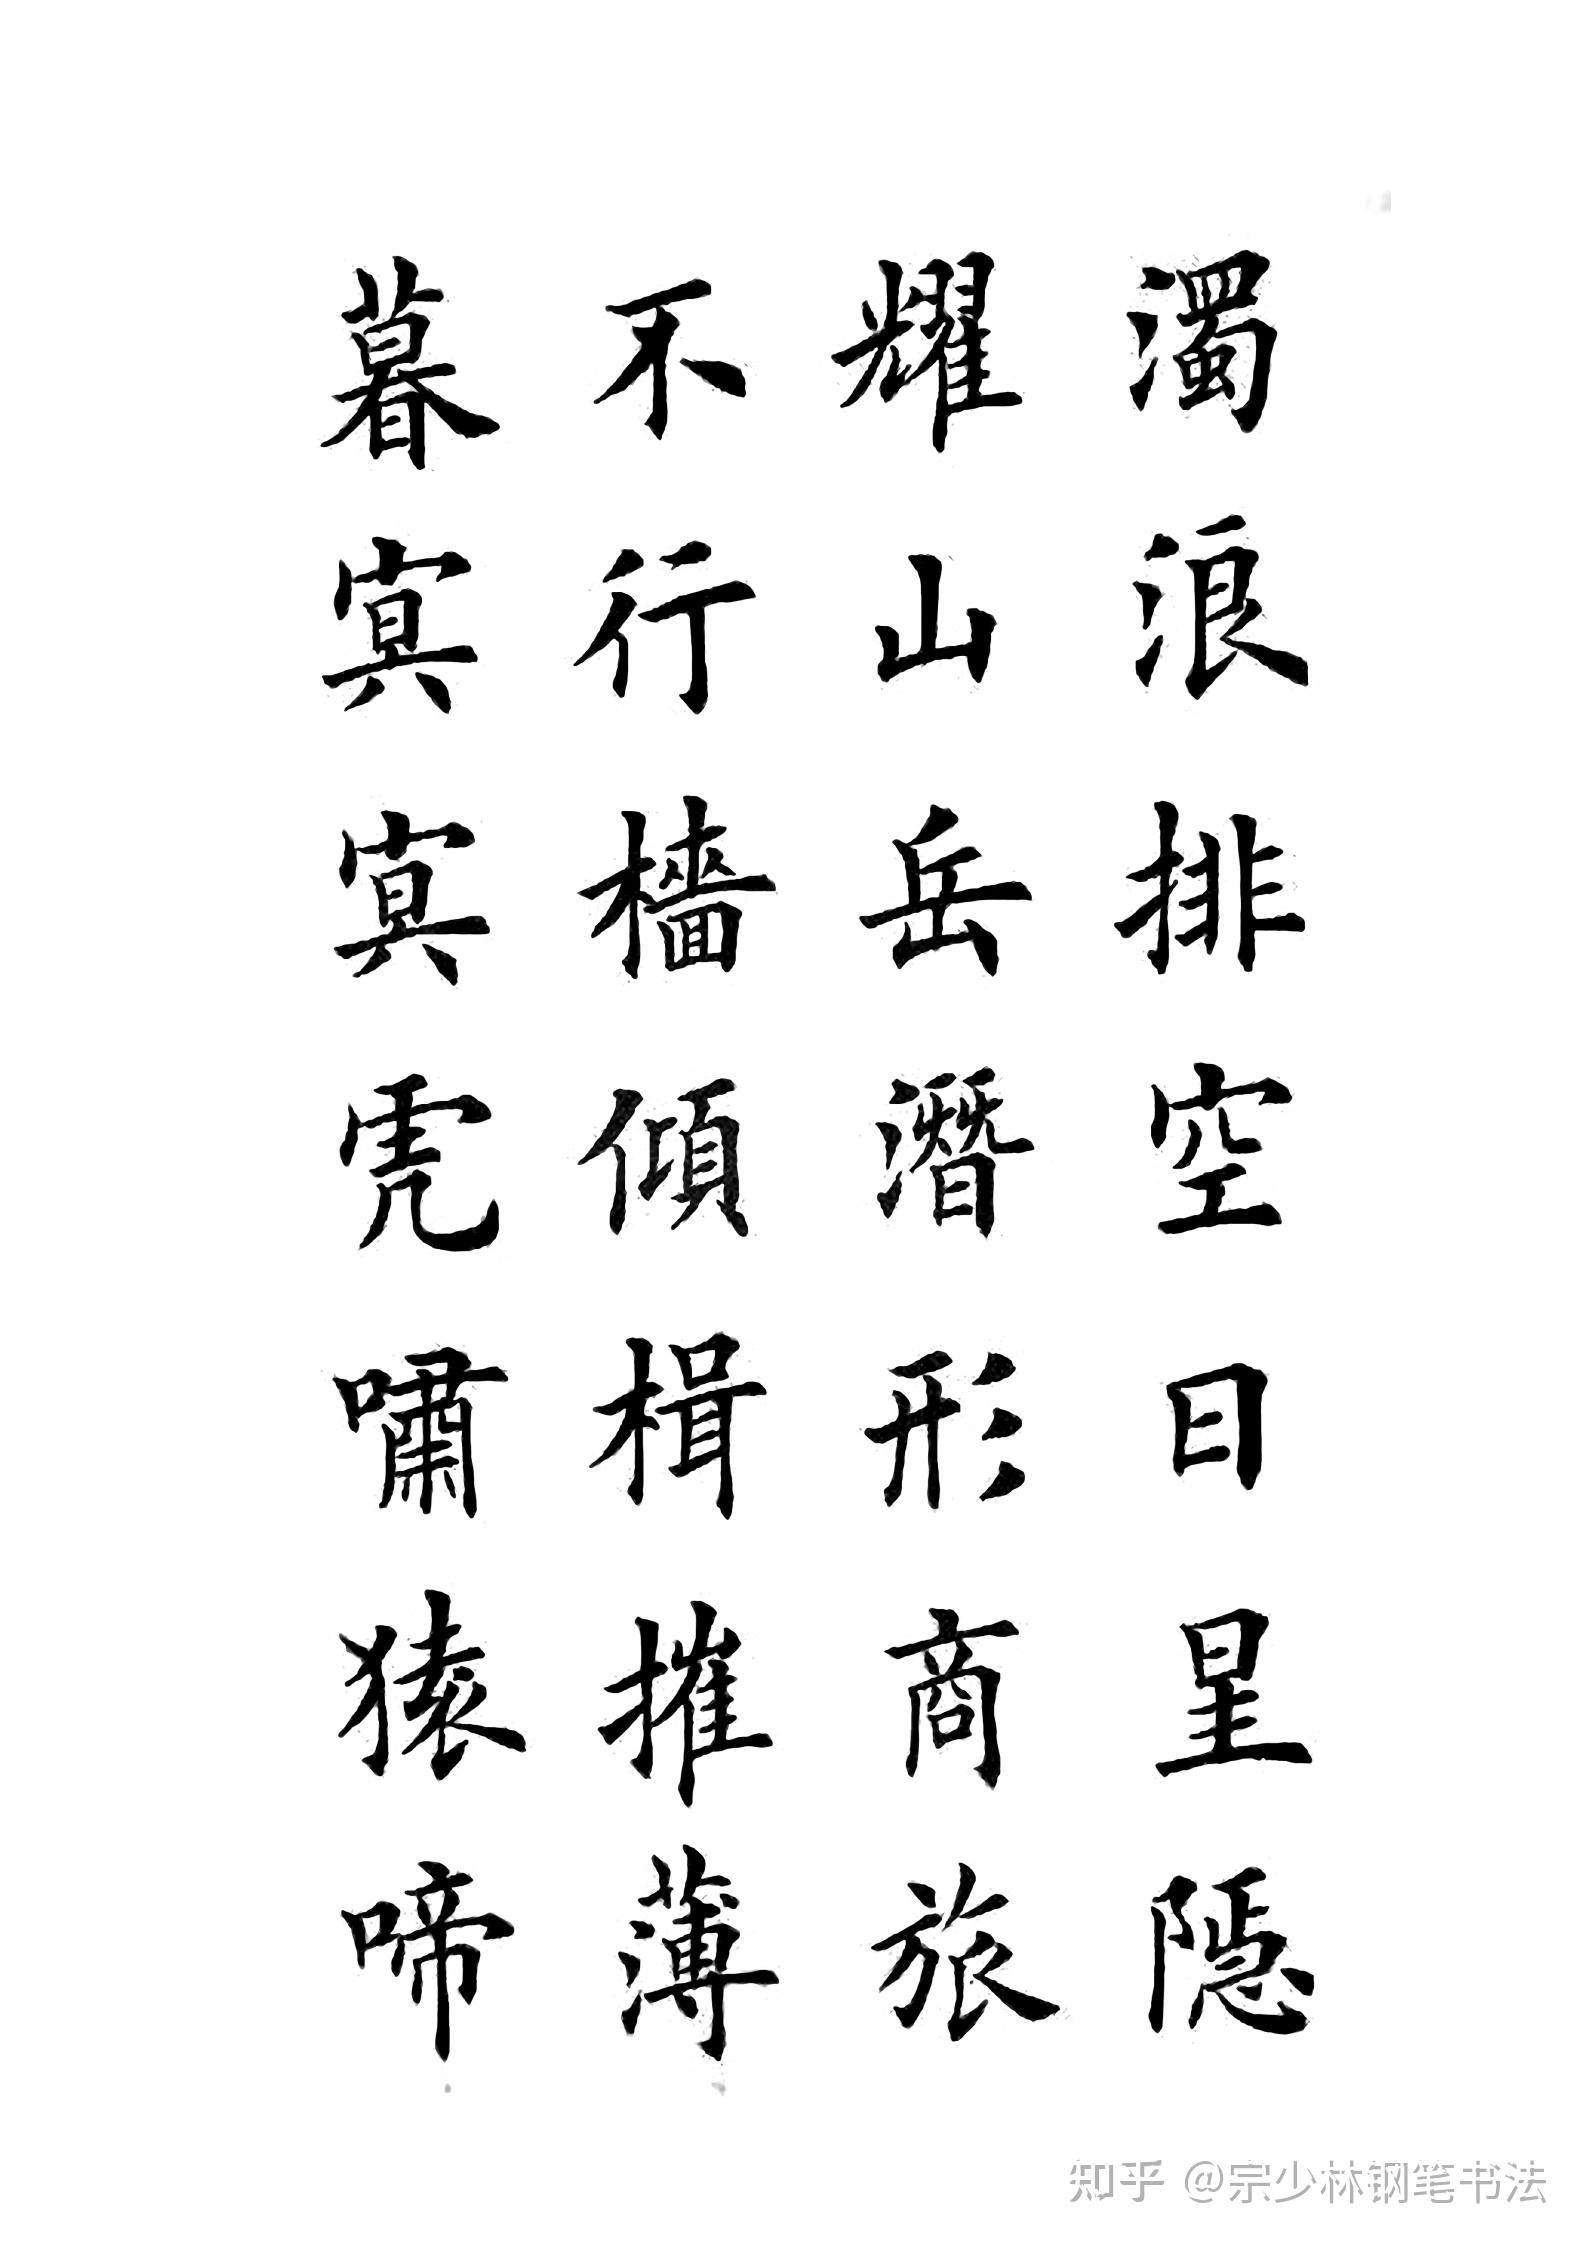 濁浪排空日星隱
耀山岳潛形商旅
不行檣傾楫摧薄
暮冥冥虎嘯猿啼
知乎 @宗少林钢笔书法